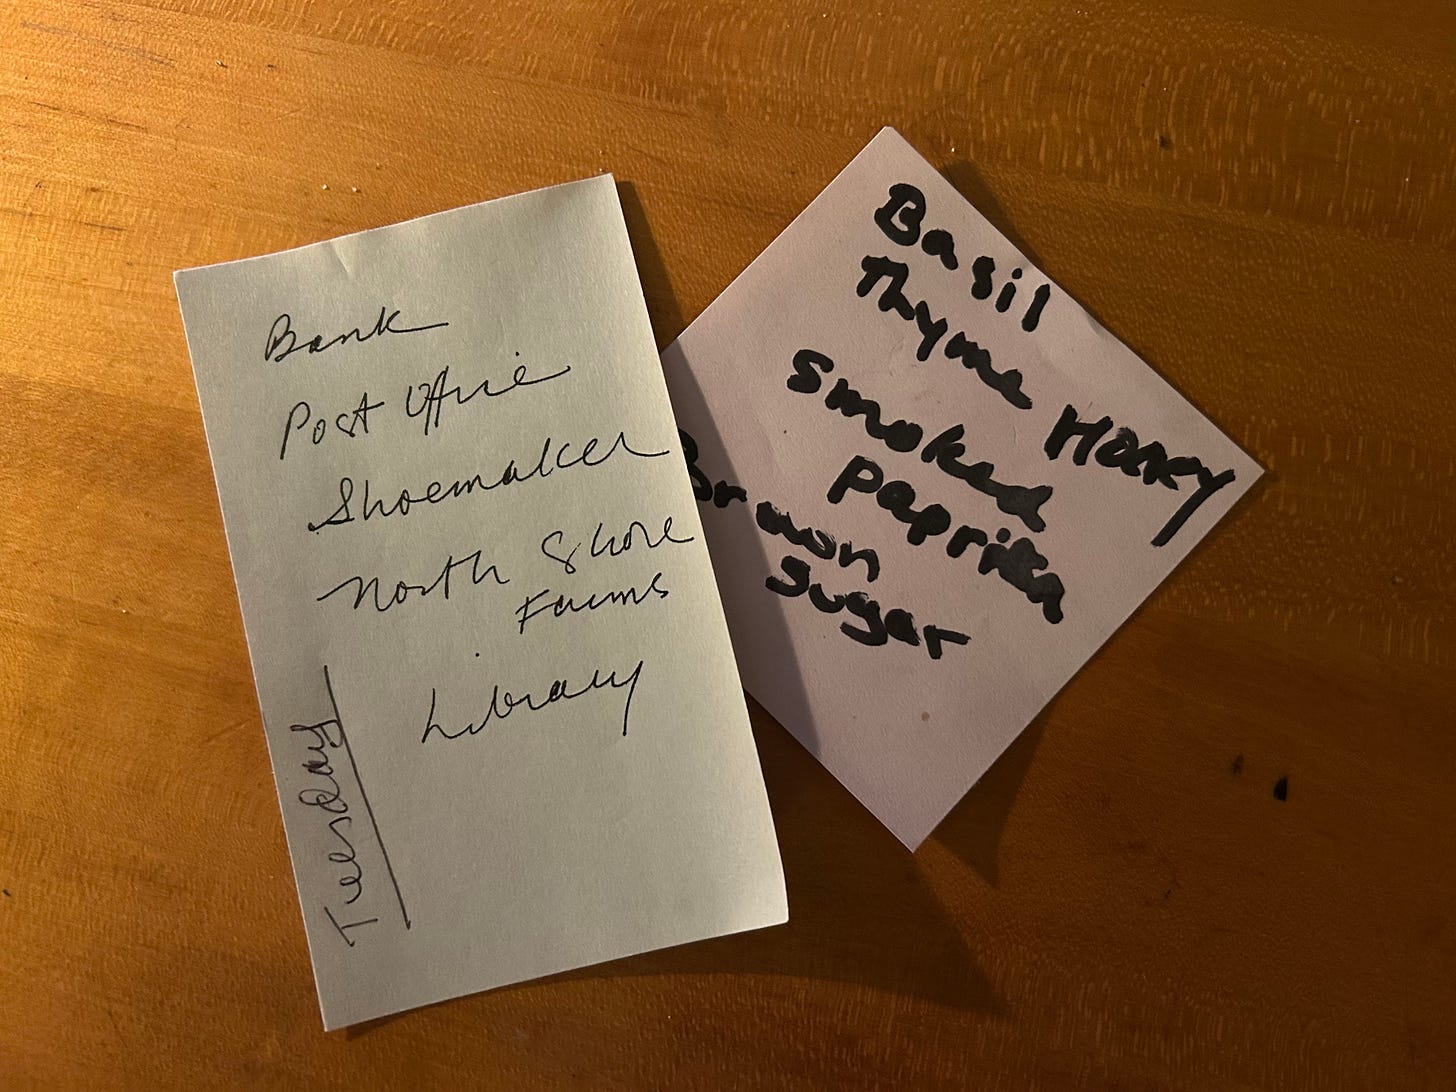 Bank
Post Office
Shoemaker
North Shore
Farms
Library
Tuesday
Basil
Thyme
Honey
Smoked
Paprika
Brown
Sugar